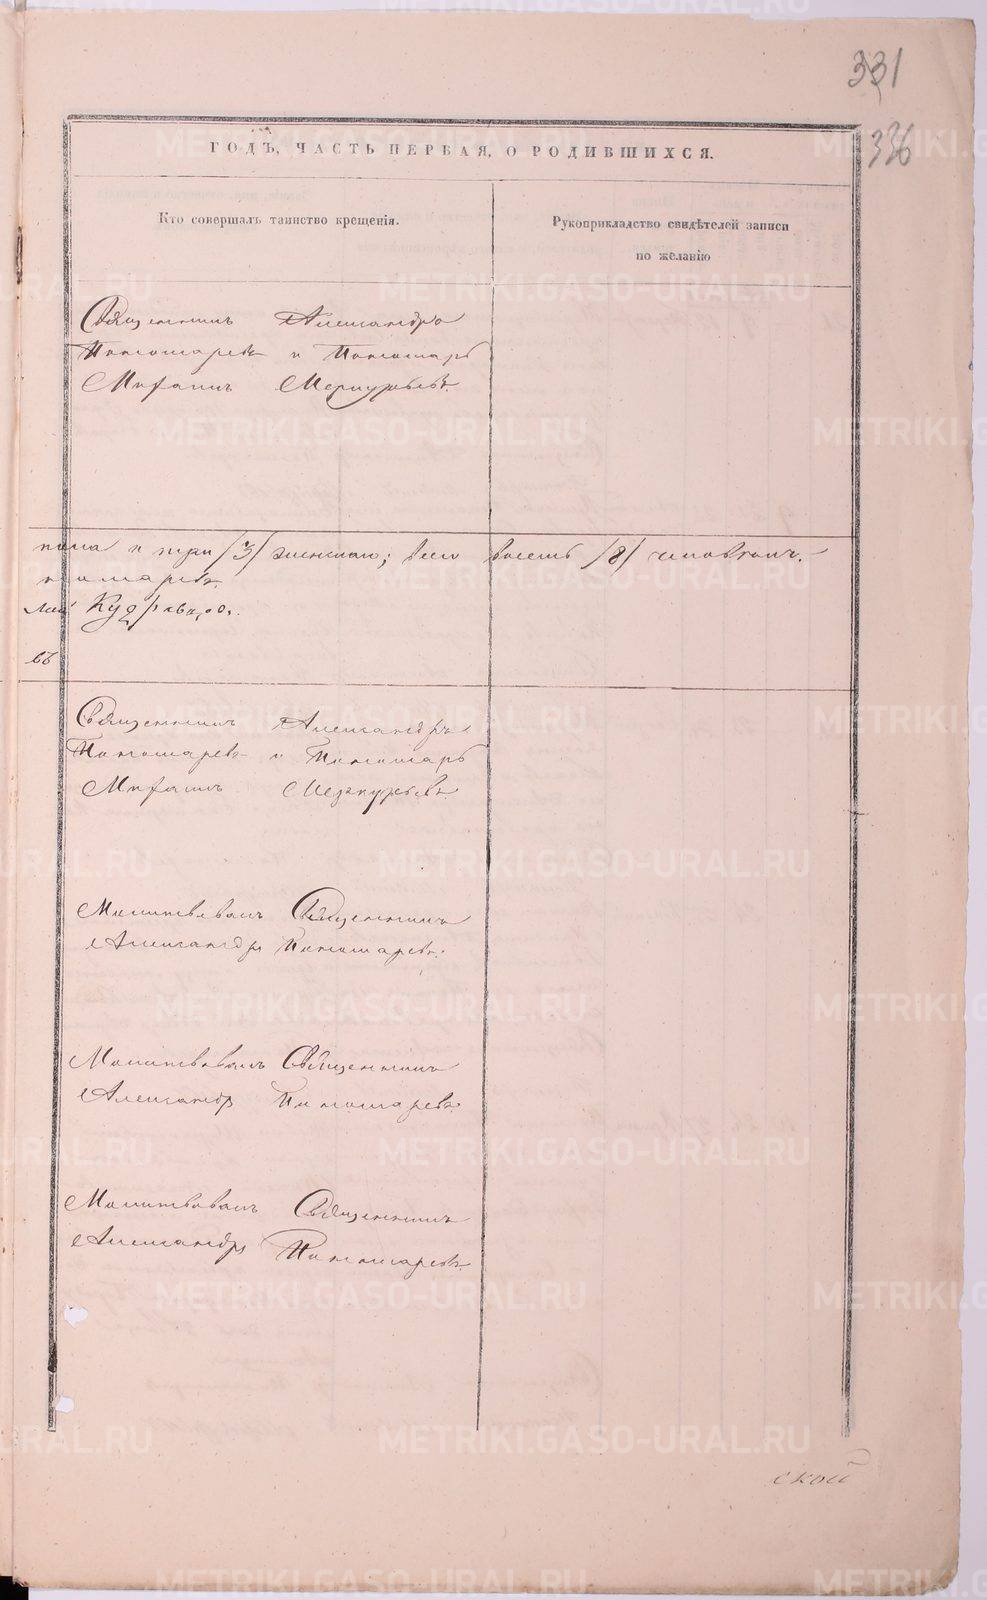 331
336
ГОДЪ, ЧАСТЬ ПЕРВАЯ, О РОДИВШИХСЯ.
Кто совершалъ таинство крещенія.
Рукоприкладство свидѣтелей записи
по желанію
Священникъ Александръ
Пономаревъ и Пономарь
Михаилъ Меркурьевъ.
пола и три /3/ женскаго; всего восемь /8/ человѣкъ.
номаревъ.
лай Кудрявцовъ.
въ
Священникъ Александръ
Пономаревъ и Пономарь
Михаилъ Меркурьевъ
Молитвовалъ Священникъ
Александръ Пономаревъ.
Молитвовалъ Священникъ
Александръ Пономаревъ
Молитвовалъ Священникъ
Александръ Пономаревъ.
ской
METRIKI.GASO-URAL.RU